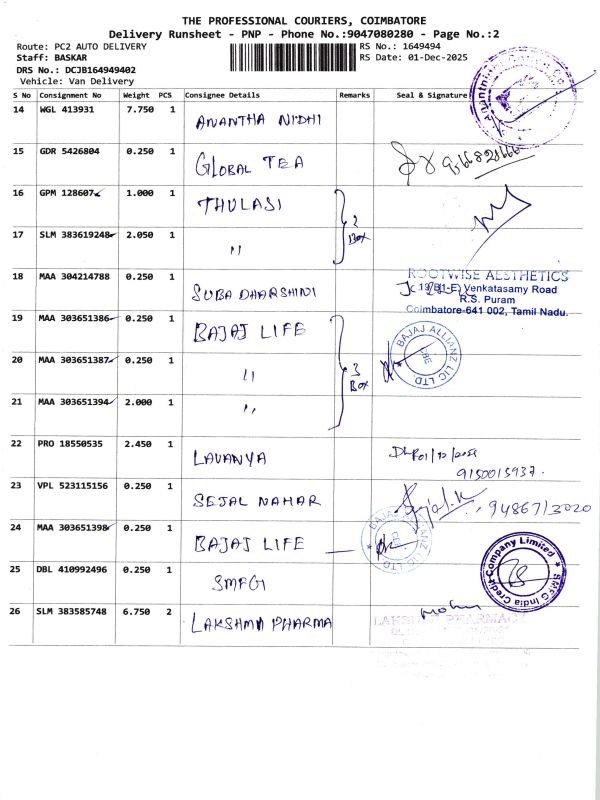 THE PROFESSIONAL COURIERS, COIMBATORE
Delivery Runsheet - PNP - Phone No.:9047080280 - Page No.:2
Route: PC2 AUTO DELIVERY
RS No.: 1649494
Staff: BASKAR
RS Date: 01-Dec-2025
DRS No.: DCJB164949402
Vehicle: Van Delivery
S No Consignment No Weight PCS Consignee Details Remarks Seal & Signature
14 WGL 413931 7.750 1 ANANTHA NIDHI
15 GDR 5426804 0.250 1 GLOBAL TEA
16 GPM 128607 1.000 1 THULASI
2 Box
17 SLM 383619248 2.050 1 "
18 MAA 304214788 0.250 1 SUBA DHARSHINI
ROOTWISE AESTHETICS
Venkatasamy Road
R.S. Puram
Coimbatore-641 002, Tamil Nadu.
19 MAA 303651386 0.250 1 BAJAJ LIFE
BAJAJ ALLIANZ LIC LTD
CBE
20 MAA 303651387 0.250 1 "
3 Box
21 MAA 303651394 2.000 1 "
22 PRO 18550535 2.450 1 LAVANYA
9150015937.
23 VPL 523115156 0.250 1 SEJAL NAHAR Sejal.N 9486713020
24 MAA 303651398 0.250 1 BAJAJ LIFE
BAJAJ ALLIANZ LIC LTD
25 DBL 410992496 0.250 1 SMFGI
SMFG India Credit Company Limited
26 SLM 383585748 6.750 2 LAKSHMI PHARMA
LAKSHMI PHARMACY